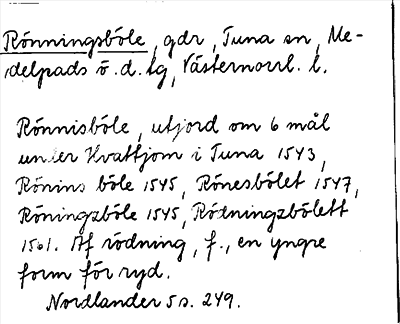 Rönningsböle, gdr, Tuna sn, Me-
delpads ö. d. tg, Västernorrl. l.
Rönnisböle, utjord om 6 mål
under Hvattjom i Tuna 1543,
Rönins böle 1545, Rönesbölet 1547,
Röningzböle 1545, Rödningzbölett
1561. Af rödning, f., en yngre
form för ryd.
Nordlander 5 s. 249.